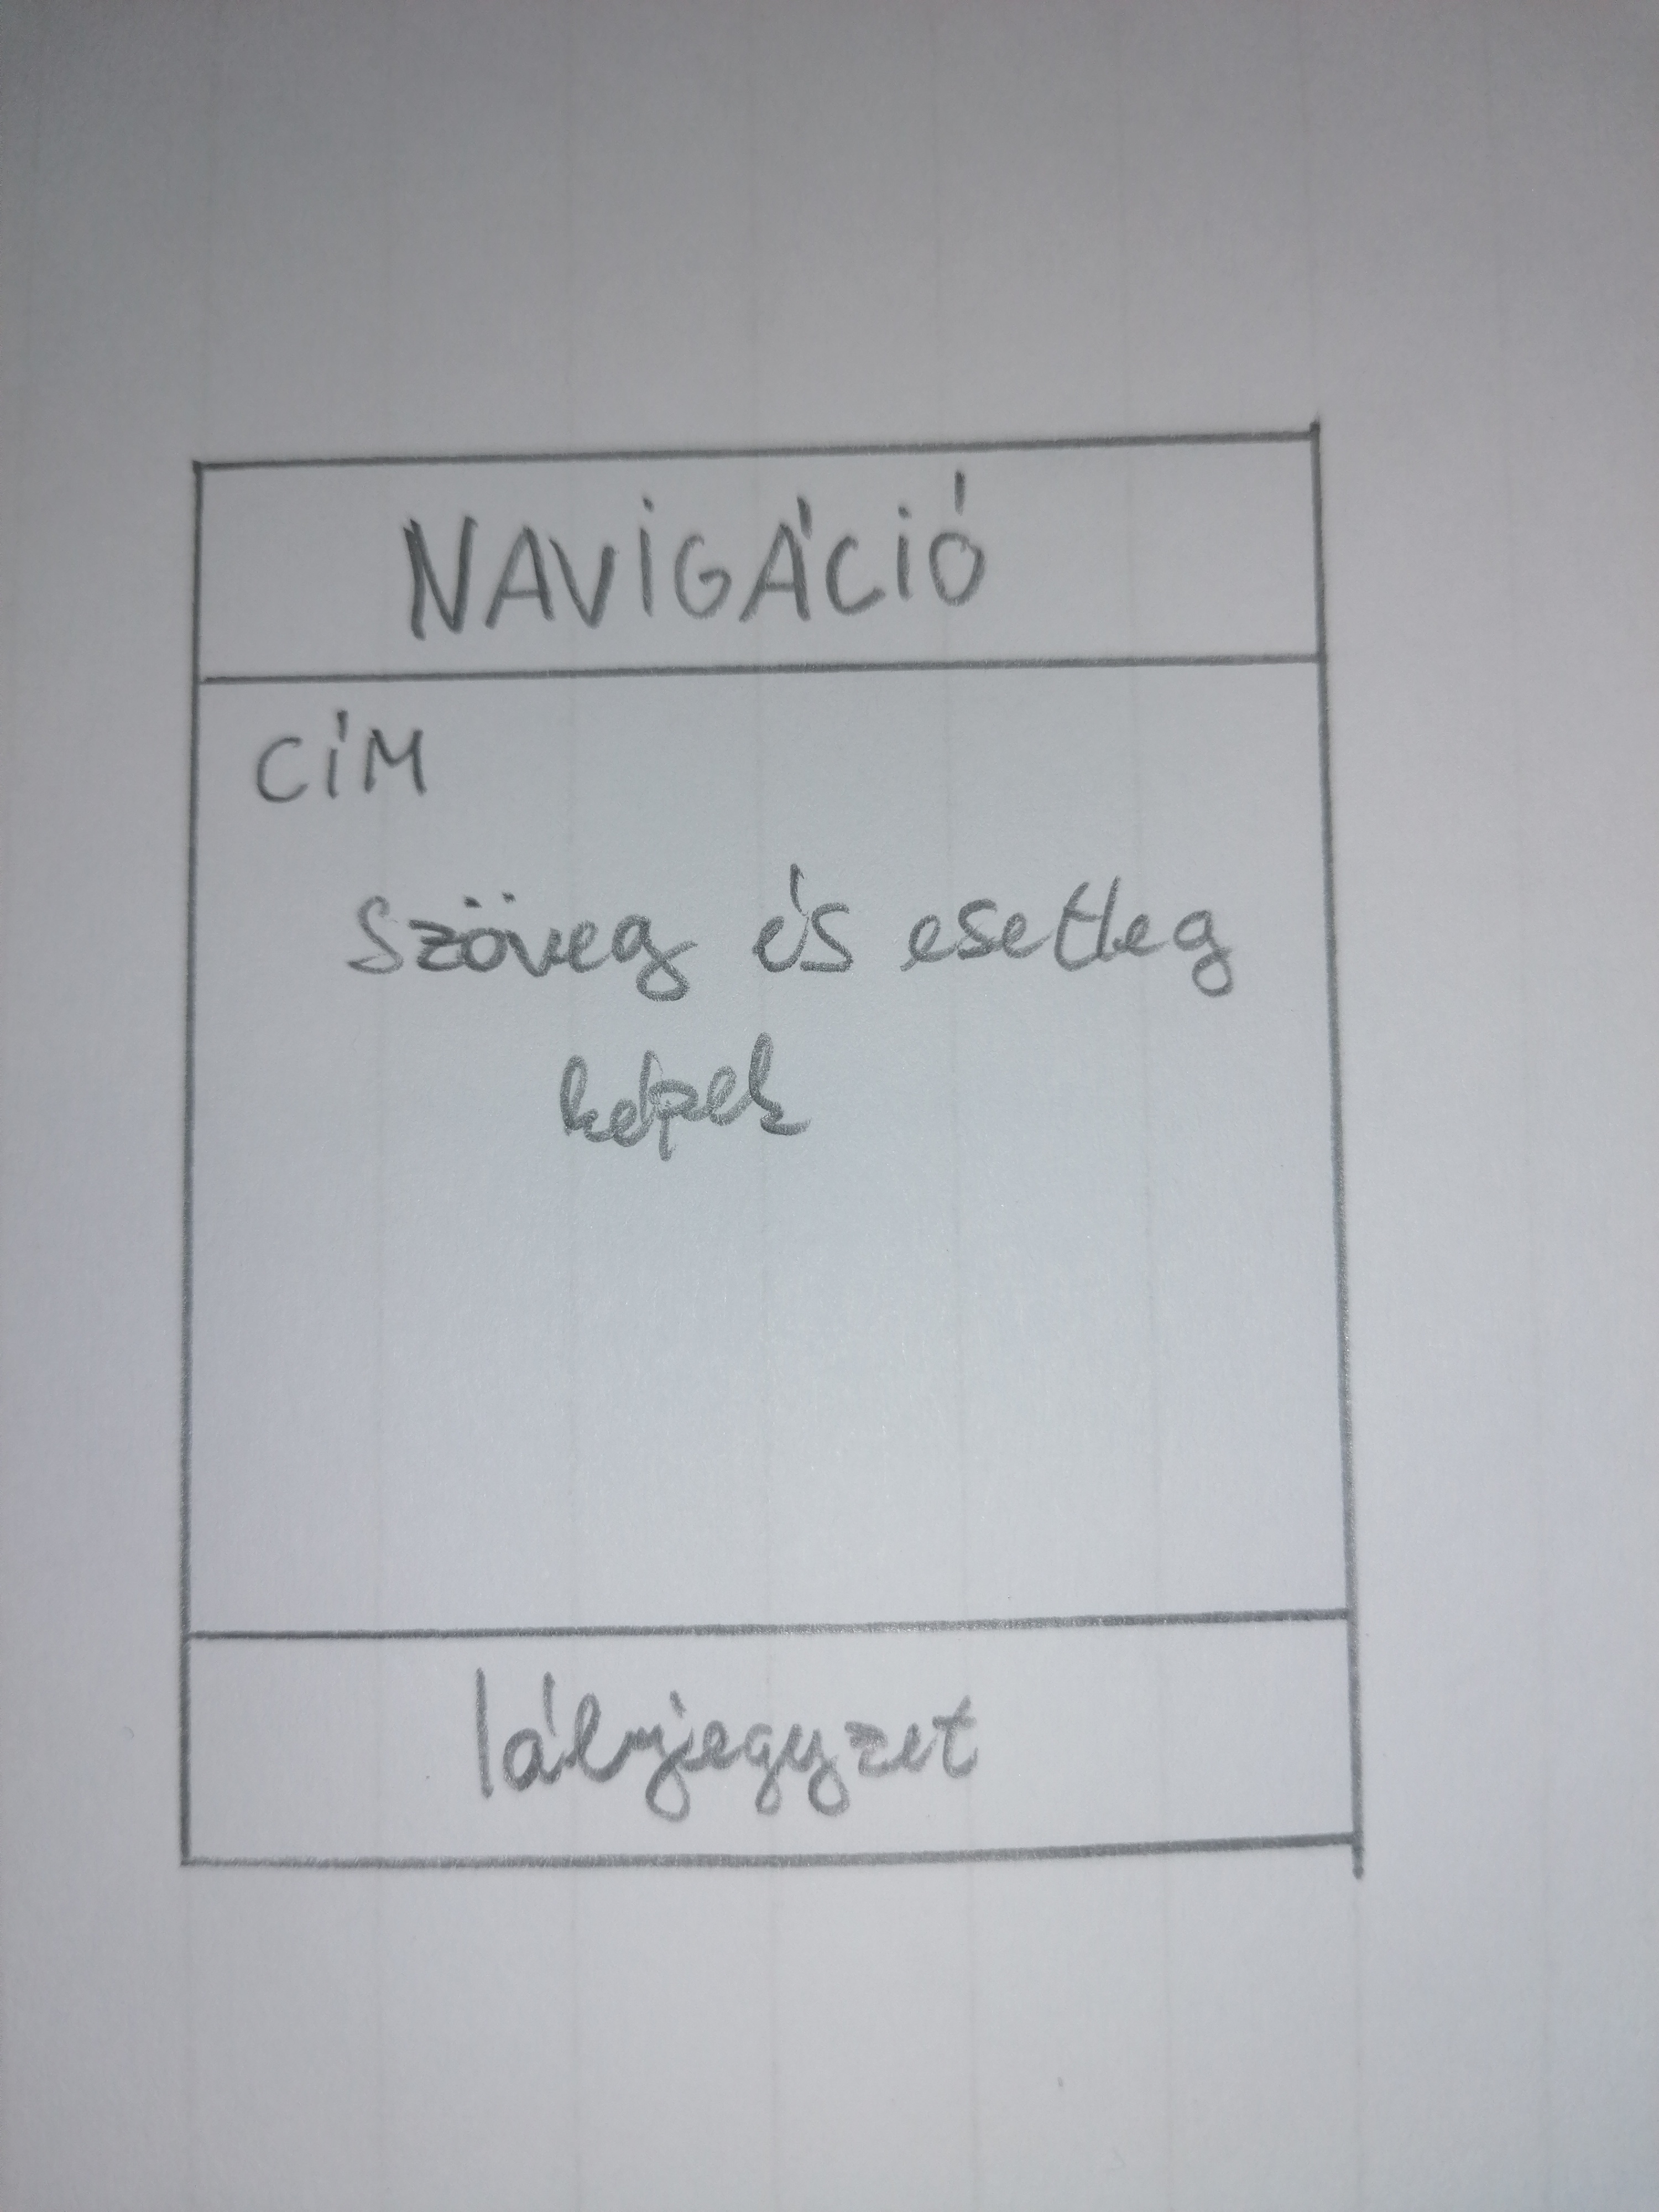 NAVIGÁCIÓ
CÍM
Szöveg és esetleg
képek
lábjegyzet